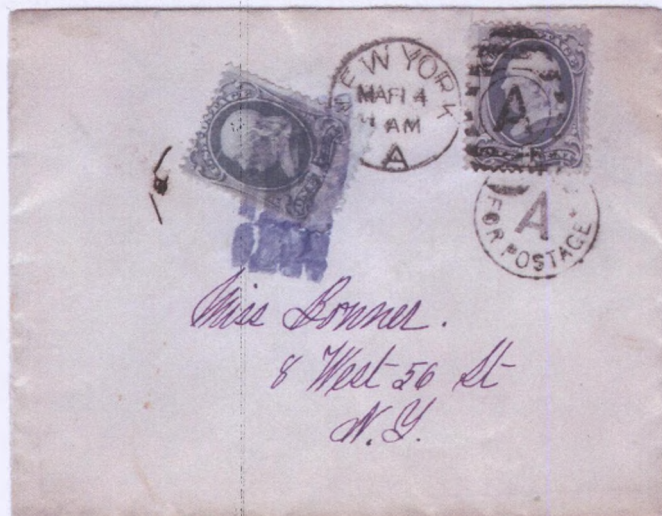 NEW YORK
MAR 14
11 AM
A
A
A
FOR POSTAGE
Miss Bonner.
8 West 56 St
N.Y.